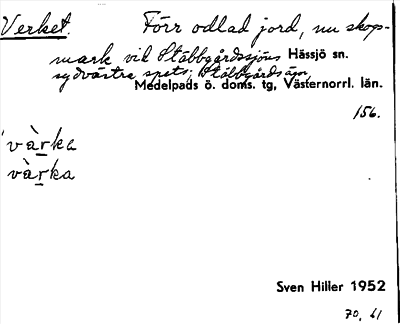 Verket. Förr odlad jord, nu skogs-
mark vid Stäbbgårdssjöns Hässjö sn.
sydvästra spets; Stäbbgårds ägor
Medelpads ö. doms. tg, Västernorrl. län.
156.
vàrka
vàrka
Sven Hiller 1952
70, 61